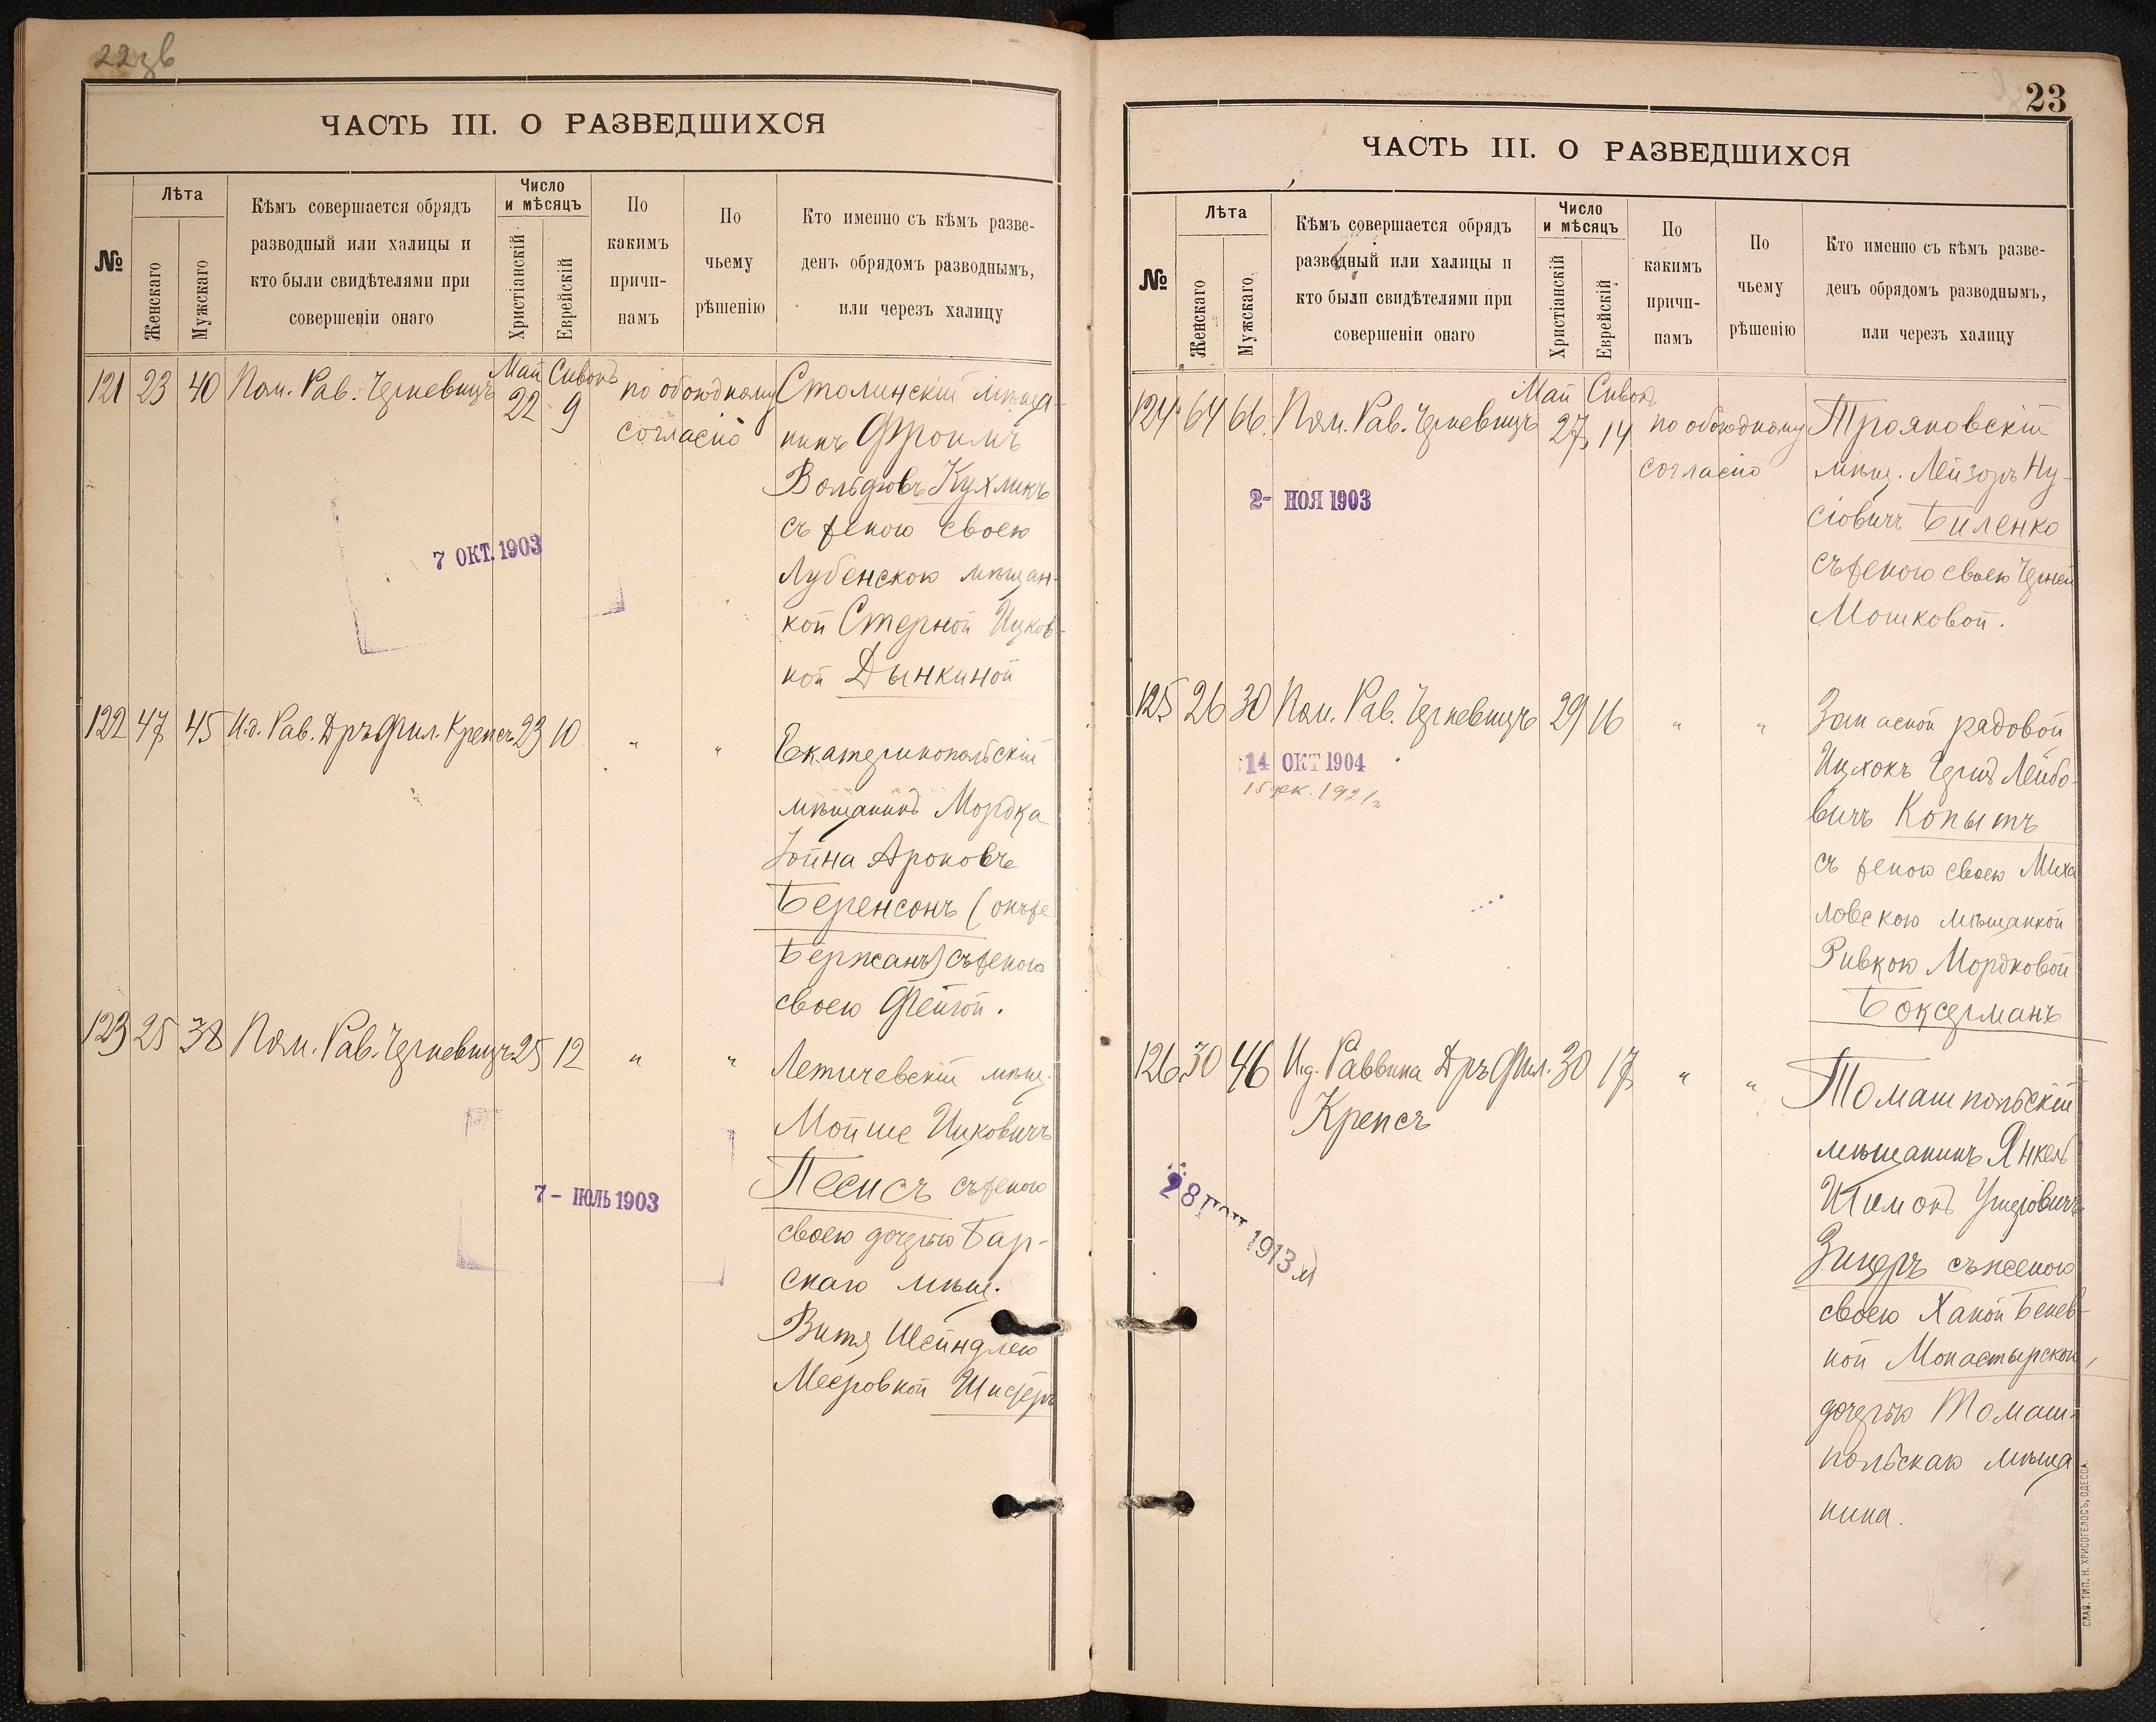 22зв
ЧАСТЬ III. О РАЗВЕДШИХСЯ
№
Лѣта
Женскаго
Мужскаго
Кѣмъ совершается обрядъ
разводный или халицы и
кто были свидѣтелями при
совершеніи онаго
Число
и мѣсяцъ
Христіанскій
Еврейскій
По
какимъ
причи-
намъ
По
чьему
рѣшенію
Кто именно съ кѣмъ разве-
денъ обрядомъ разводнымъ,
или черезъ халицу
121 23 40 Пом. Рав. Черневицъ Май 22 Сивонъ 9 по обоюдному
согласію
Столинскій мѣща-
нинъ Фроимъ
Вольфовъ Кухликъ
съ женою своею
Лубенскою мѣщан-
кой Стерной Ицков-
ной Дынкиной
7 ОКТ. 1903
122 47 45 И.д. Рав. Дръ Фил. Крепсъ 23 10 " "
Екатеринопольскій
мѣщанинъ Мордка
Іойна Ароновъ
Беренсонъ (онъ же
Бержанъ) съ женою
своею Фейгой.
123 25 38 Пом. Рав. Черневицъ 25 12 " "
Летичевскій мѣщ.
Мойше Ицковичъ
Песисъ съ женою
своею дочерью Бар-
скаго мѣщ.
Витя Шейндлею
Мееровной
7 - ІЮЛЬ 1903
23
ЧАСТЬ III. О РАЗВЕДШИХСЯ
№
Лѣта
Женскаго
Мужскаго
Кѣмъ совершается обрядъ
разводный или халицы и
кто были свидѣтелями при
совершеніи онаго
Число
и мѣсяцъ
Христіанскій
Еврейскій
По
какимъ
причи-
намъ
По
чьему
рѣшенію
Кто именно съ кѣмъ разве-
денъ обрядомъ разводнымъ,
или черезъ халицу
124 64 66 Пом. Рав. Черневицъ Май 27 Сивонъ 14 по обоюдному
согласію
Трояновскій
мѣщ. Лейзоръ Ну-
сіовичъ Биленко
съ женою своею Черней
Мошковой.
2- НОЯ 1903
125 26 30 Пом. Рав. Черневицъ 29 16 " "
Запасной радовой
Ицхокъ Лейбо-
вичъ Копытъ
съ женою своею Миха
ловскою мѣщанкой
Ривкою Мордковой
Боксерманъ
14 ОКТ 1904
15 дек. 1921 г.
126 30 46 И.д. Раввина Дръ Фил. 30 17 " "
Крепсъ
Томашпольскій
мѣщанинъ Янкель
Шимонъ Ушеровичъ
Зицеръ съ женою
своею Ханой Бенев-
ной Монастырской,
дочерью Томаш-
польскаго мѣща
нина.
28 1913
СЛАВ. ТИП. Н. ХРИСОГЕЛОСЪ, ОДЕССА.